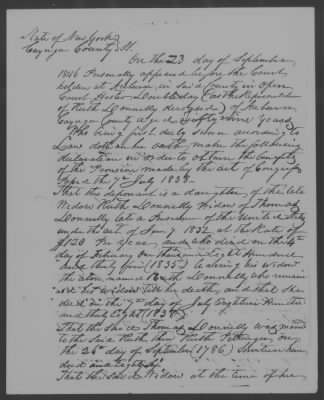 State of New York
Cayuga County SS.
On the 23 day of September
1846 Personally appeared before the Court
holden at Auburn in said County in Open
Court Hester Donnelly
of Ruth Donnelly deceased) of Auburn
Cayuga County aged fifty nine years
Who being first duly sworn according to
Law doth on her oath make the following
declaration in order to obtain the benefits
of the Provision made by the act of Congress
Passed the 7th July 1838.
That the deponent is a daughter of the late
Widow Ruth Donnelly Widow of Thomas
Donnelly late a Pensioner of the United States
under the act of June 7. 1832 at the Rate of
$120 Per Year and who died on the 4th
day of February One thousand Eight Hundred
and thirty five (1835) Leaving his Widow
the above named Ruth Donnelly who remain
ed his Widow till her death, and that she
died in the day of July Eighteen Hundred
and thirty Eight (1838)
That the said Thomas Donnelly was married
to the said Ruth, then Ruth
on the 26th day of September (1786) Seventeen hun
dred and Eighty Six
That the said Widow at the time of her